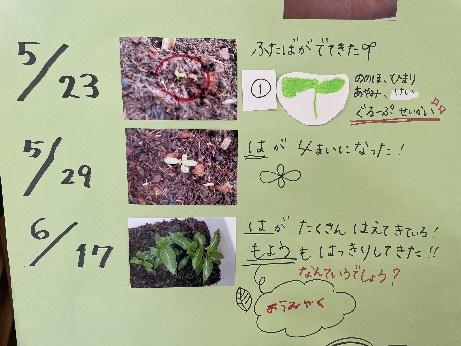 5/23
ふたばがでてきた
①
ののほ、ひまり
あやみ、けい
ぐるーぷ せいかい
5/29
はが 4まいになった!
6/17
はが たくさん はえてきている!
もようも はっきりしてきた!!
なんていうでしょう?
ようみゃく